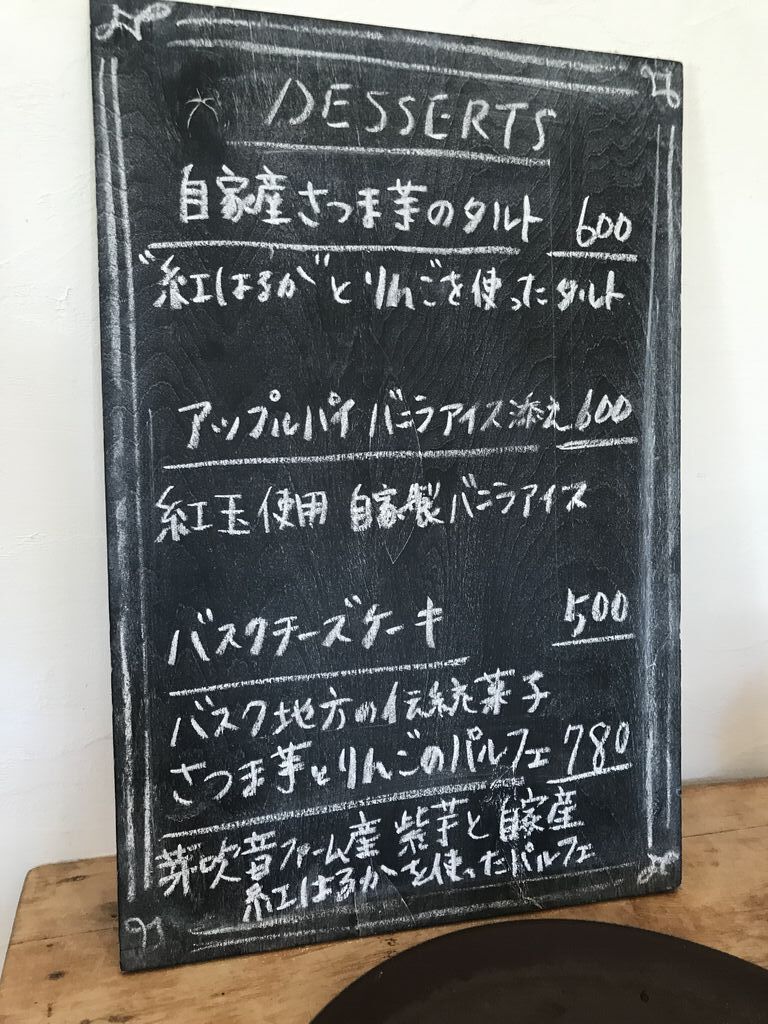 DESSERTS
自家産さつま芋のタルト 600
"紅はるか"とりんごを使ったタルト
アップルパイ バニラアイス添え 600
紅玉使用 自家製バニラアイス
バスクチーズケーキ 500
バスク地方の伝統菓子
さつま芋とりんごのパルフェ 780
芽吹音ファーム産 紫芋と自家産
紅はるかを使ったパルフェ